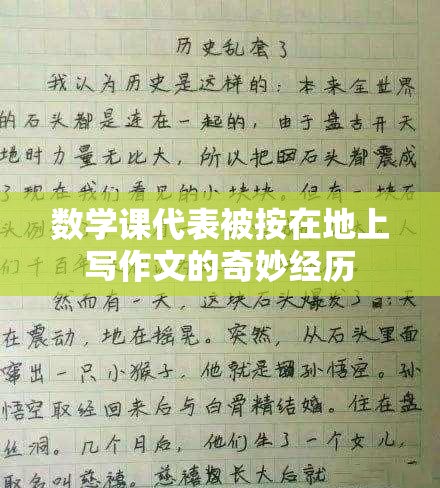 历史乱套了
我认为历史是这样的：本来全世界
的石头都是连在一起的，由于盘古开天
地时力量无比大，所以把石头都震成
了现在我们看见的小块块。但有一块石
头例
数学课代表被按在地上
写作文的奇妙经历
们千百年
然而有一天，这块石头爆发了：天
在震动，地在摇晃。突然，从石头里面
窜出一只小猴子，他就是孙悟空。孙
悟空取经回来后与白骨精结婚。住在盘
丝洞。几个月后，他们生了一个女儿，
取名叫慈禧。慈禧长大后就